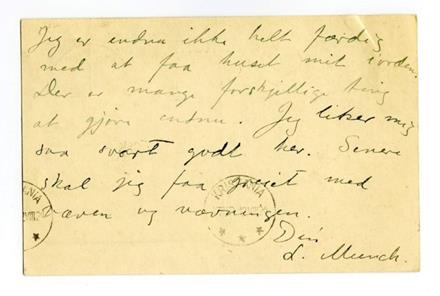 Jeg er endnu ikke helt færdig
med at faa huset mit iorden.
Der er mange forskjellige ting
at gjöre endnu. Jeg liker mig
saa svært godt her. Senere
skal jeg faa greiet med
væven og vævningen.
Din
L. Munch.